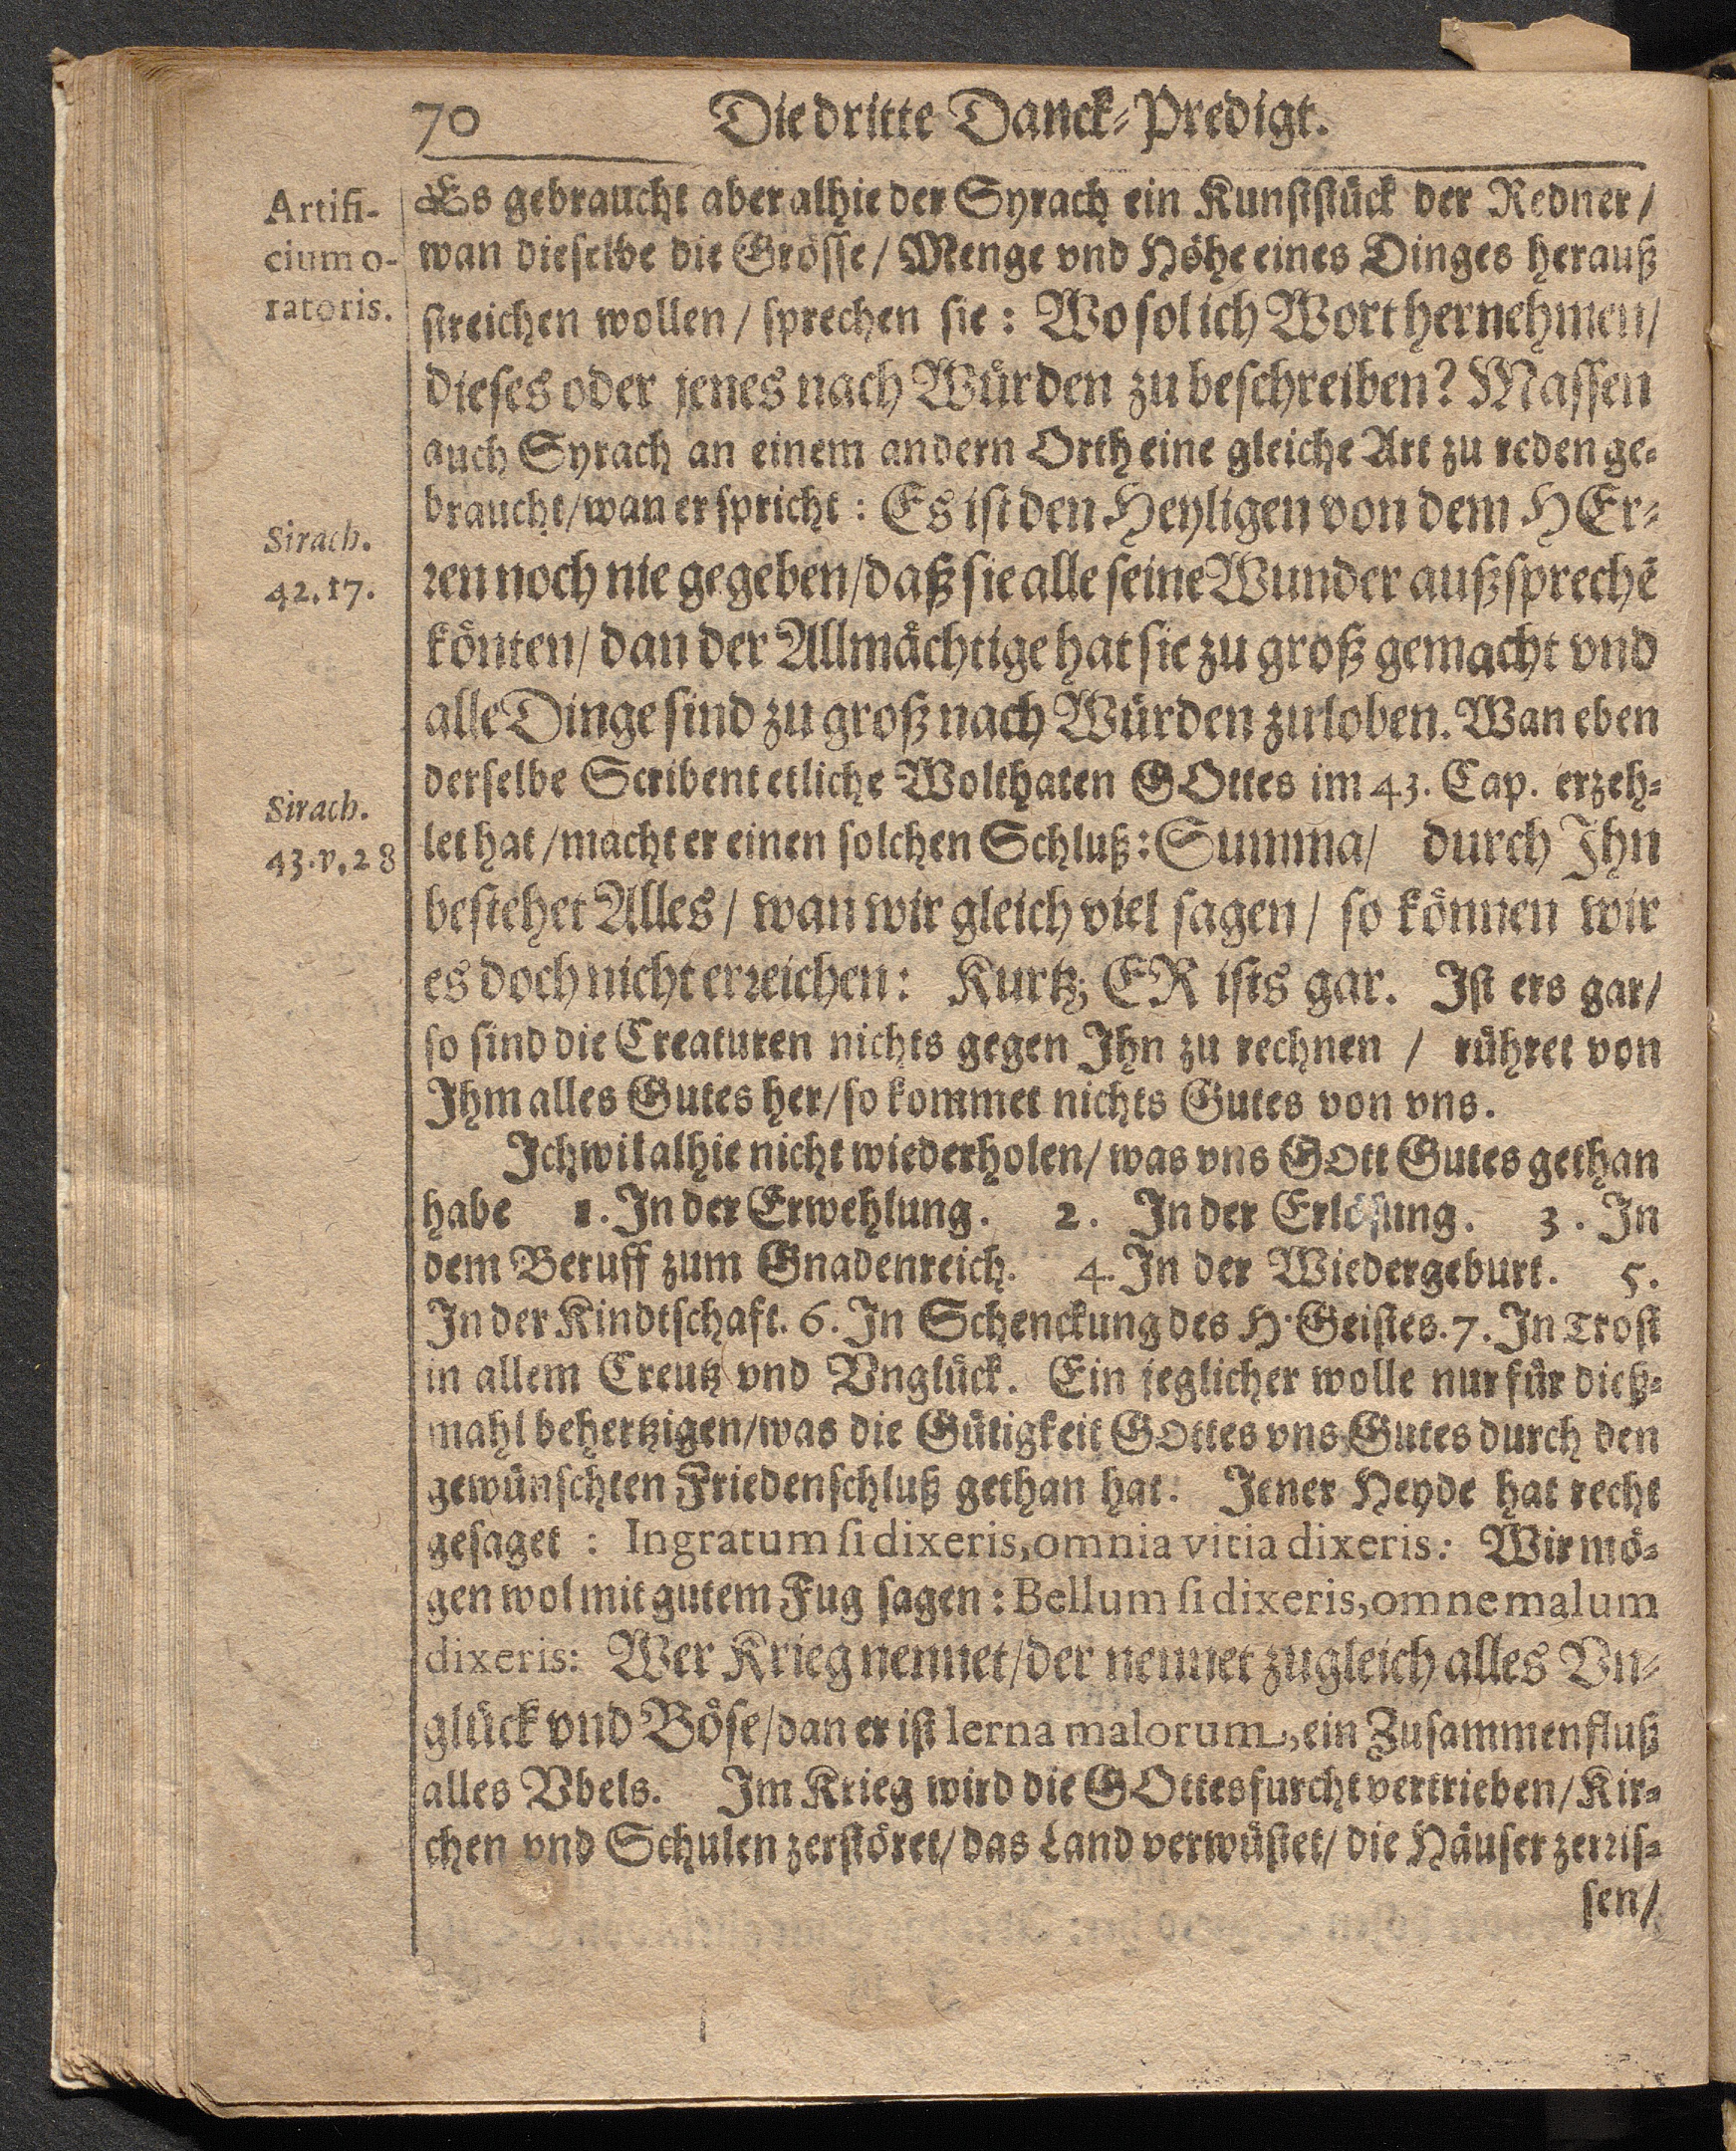 70 Die dritte Danck-Predigt.
Artifi-
cium o-
ratoris.
Es gebraucht aber alhie der Syrach ein Kunststück der Redner /
wan dieselbe die Grösse / Menge vnd Höhe eines Dinges herauß
streichen wollen / sprechen sie : Wo sol ich Wort hernehmen /
dieses oder jenes nach Würden zu beschreiben? Massen
auch Syrach an einem andern Orth eine gleiche Art zu reden ge-
braucht / wan er spricht : Es ist den Heyligen von dem HEr-
Sirach.
42. 17.
ren noch nie gegeben / daß sie alle seine Wunder außsprechē
könten / dan der Allmächtige hat sie zu groß gemacht vnd
alle Dinge sind zu groß nach Würden zu loben. Wan eben
derselbe Scribent etliche Wolthaten GOttes im 43. Cap. erzeh-
Sirach.
43. v. 28
let hat / macht er einen solchen Schluß: Summa / durch Ihn
bestehet Alles / wan wir gleich viel sagen / so können wir
es doch nicht erreichen: Kurtz; ER ists gar. Ist ers gar /
so sind die Creaturen nichts gegen Ihn zu rechnen / rühret von
Ihm alles Gutes her / so kommet nichts Gutes von vns.
Ich wil alhie nicht wiederholen / was vns GOtt Gutes gethan
habe 1. In der Erwehlung. 2. In der Erlösung. 3. In
dem Beruff zum Gnadenreich. 4. In der Wiedergeburt. 5.
In der Kindtschaft. 6. In Schenckung des H. Geistes. 7. In Trost
in allem Creutz vnd Vnglück. Ein jeglicher wolle nur für dieß-
mahl behertzigen / was die Gütigkeit GOttes vns Gutes durch den
gewünschten Friedenschluß gethan hat. Jener Heyde hat recht
gesaget : Ingratum si dixeris, omnia vitia dixeris: Wir mö-
gen wol mit gutem Fug sagen : Bellum si dixeris, omne malum
dixeris: Wer Krieg nennet / der nennet zugleich alles Vn-
glück vnd Böse / dan er ist lerna malorum, ein Zusammenfluß
alles Vbels. Im Krieg wird die GOttesfurcht vertrieben / Kir-
chen vnd Schulen zerstöret / das Land verwüstet / die Häuser zerris-
sen /